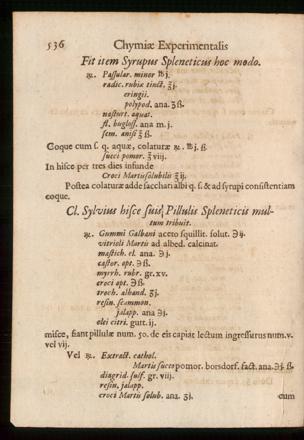 536 Chymiæ Experimentalis
Fit item Syrupus Spleneticus hoc modo.
℞. Passular. minor ℔j.
radic. rubiæ tinct. ℥j.
eringii.
polypod. ana. ʒß.
nasturt. aquat.
fl. bugloss. ana m. j.
sem. anisi ℥ ß.
Coque cum ſ. q. aquæ, colaturæ ℞. ℔j. ß.
succi pomor. ℥ viij.
In hisce per tres dies infunde
Croci Martis solubilis ℥ ij.
Postea colaturæ adde sacchari albi q. s. & ad syrupi consistentiam
coque.
Cl. Sylvius hisce suis Pillulis Spleneticis mul-
tum tribuit.
℞. Gummi Galbani aceto squillit. solut. ℈ ij.
vitrioli Martis ad albed. calcinat.
mastich. el. ana. ℈ j.
castor. opt. ℈ ß.
myrrh. rubr. gr. xv.
croci opt. ℈ ß.
troch. alhand. ʒj.
resin. scammon.
jalapp. ana ℈ j.
olei citri. gutt. ij.
misce, fiant pillulæ num. 50. de eis capiat lectum ingressurus num. v.
vel vij.
Vel ℞. Extract. cathol.
Martis succo pomor. borsdorf. fact. ana. ℈j. ß.
diagrid. sulf. gr. viij.
resin. jalapp.
croci Martis solub. ana. ʒj. cum